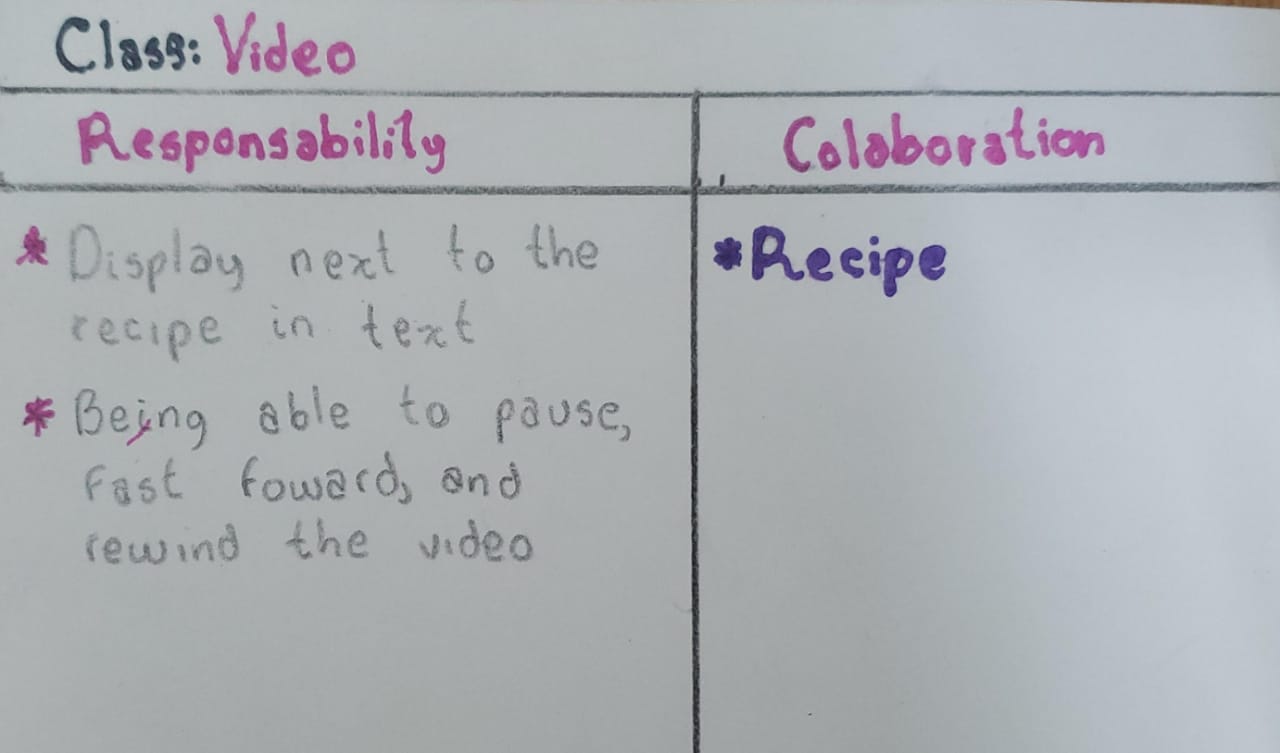 Class: Video
Responsability
Colaboration
* Display next to the
recipe in text
* Being able to pause,
fast foward, and
rewind the video
* Recipe